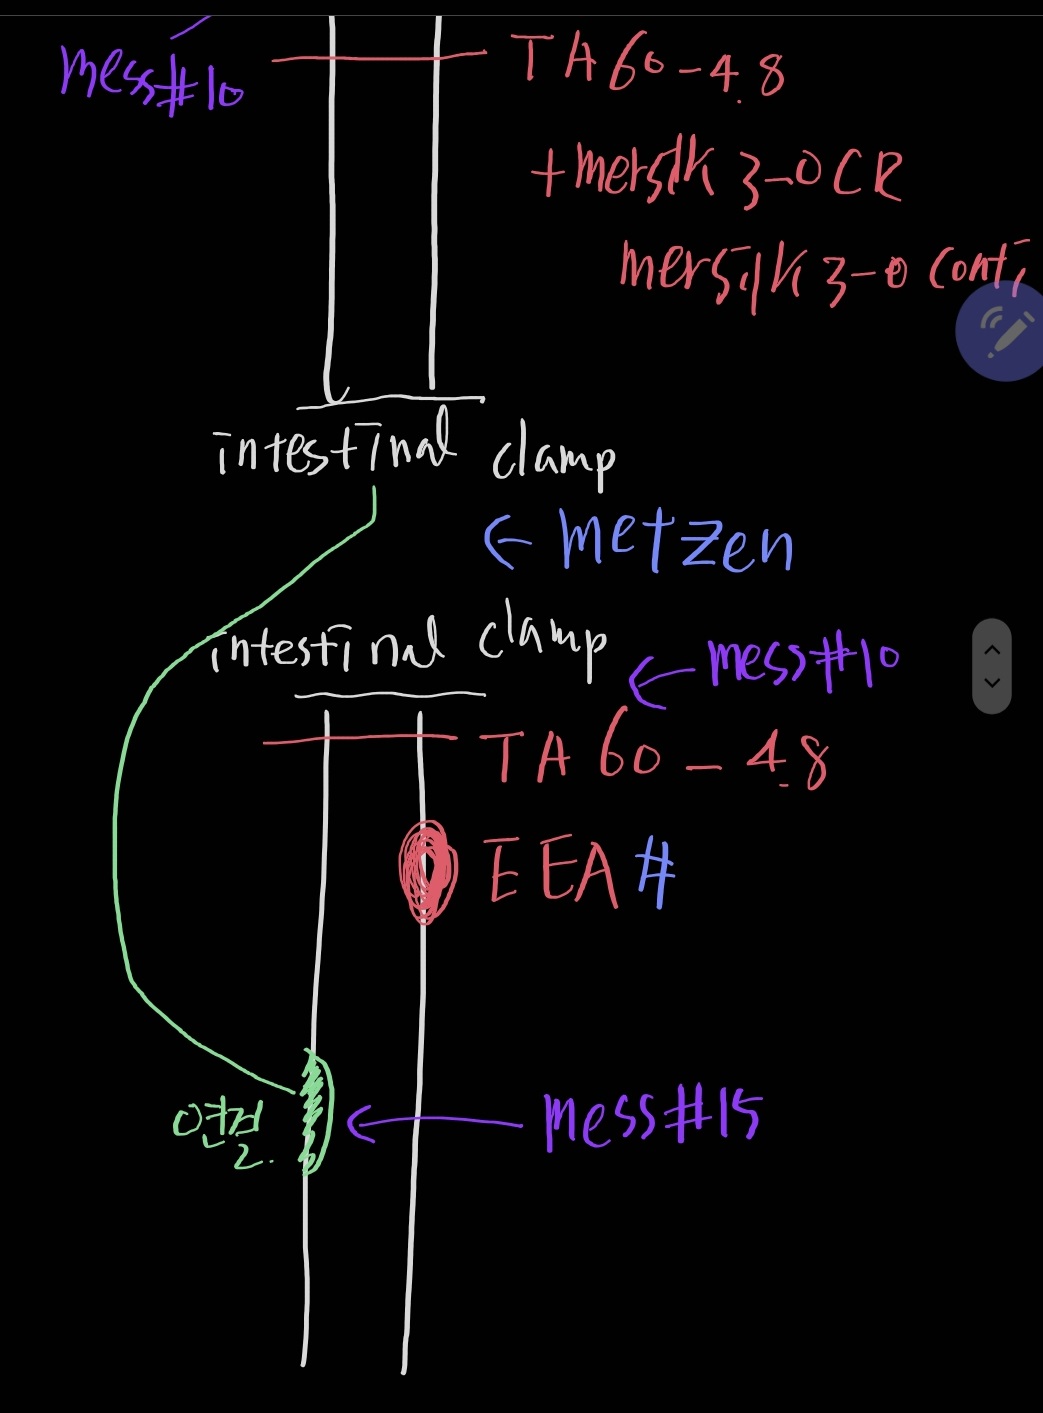 mess#10
TA 60-4.8
+mersilk 3-0 CR
mersilk 3-0 conti
intestinal clamp
← metzen
intestinal clamp
← mess#10
TA 60-4.8
EEA #
연결
← mess#15